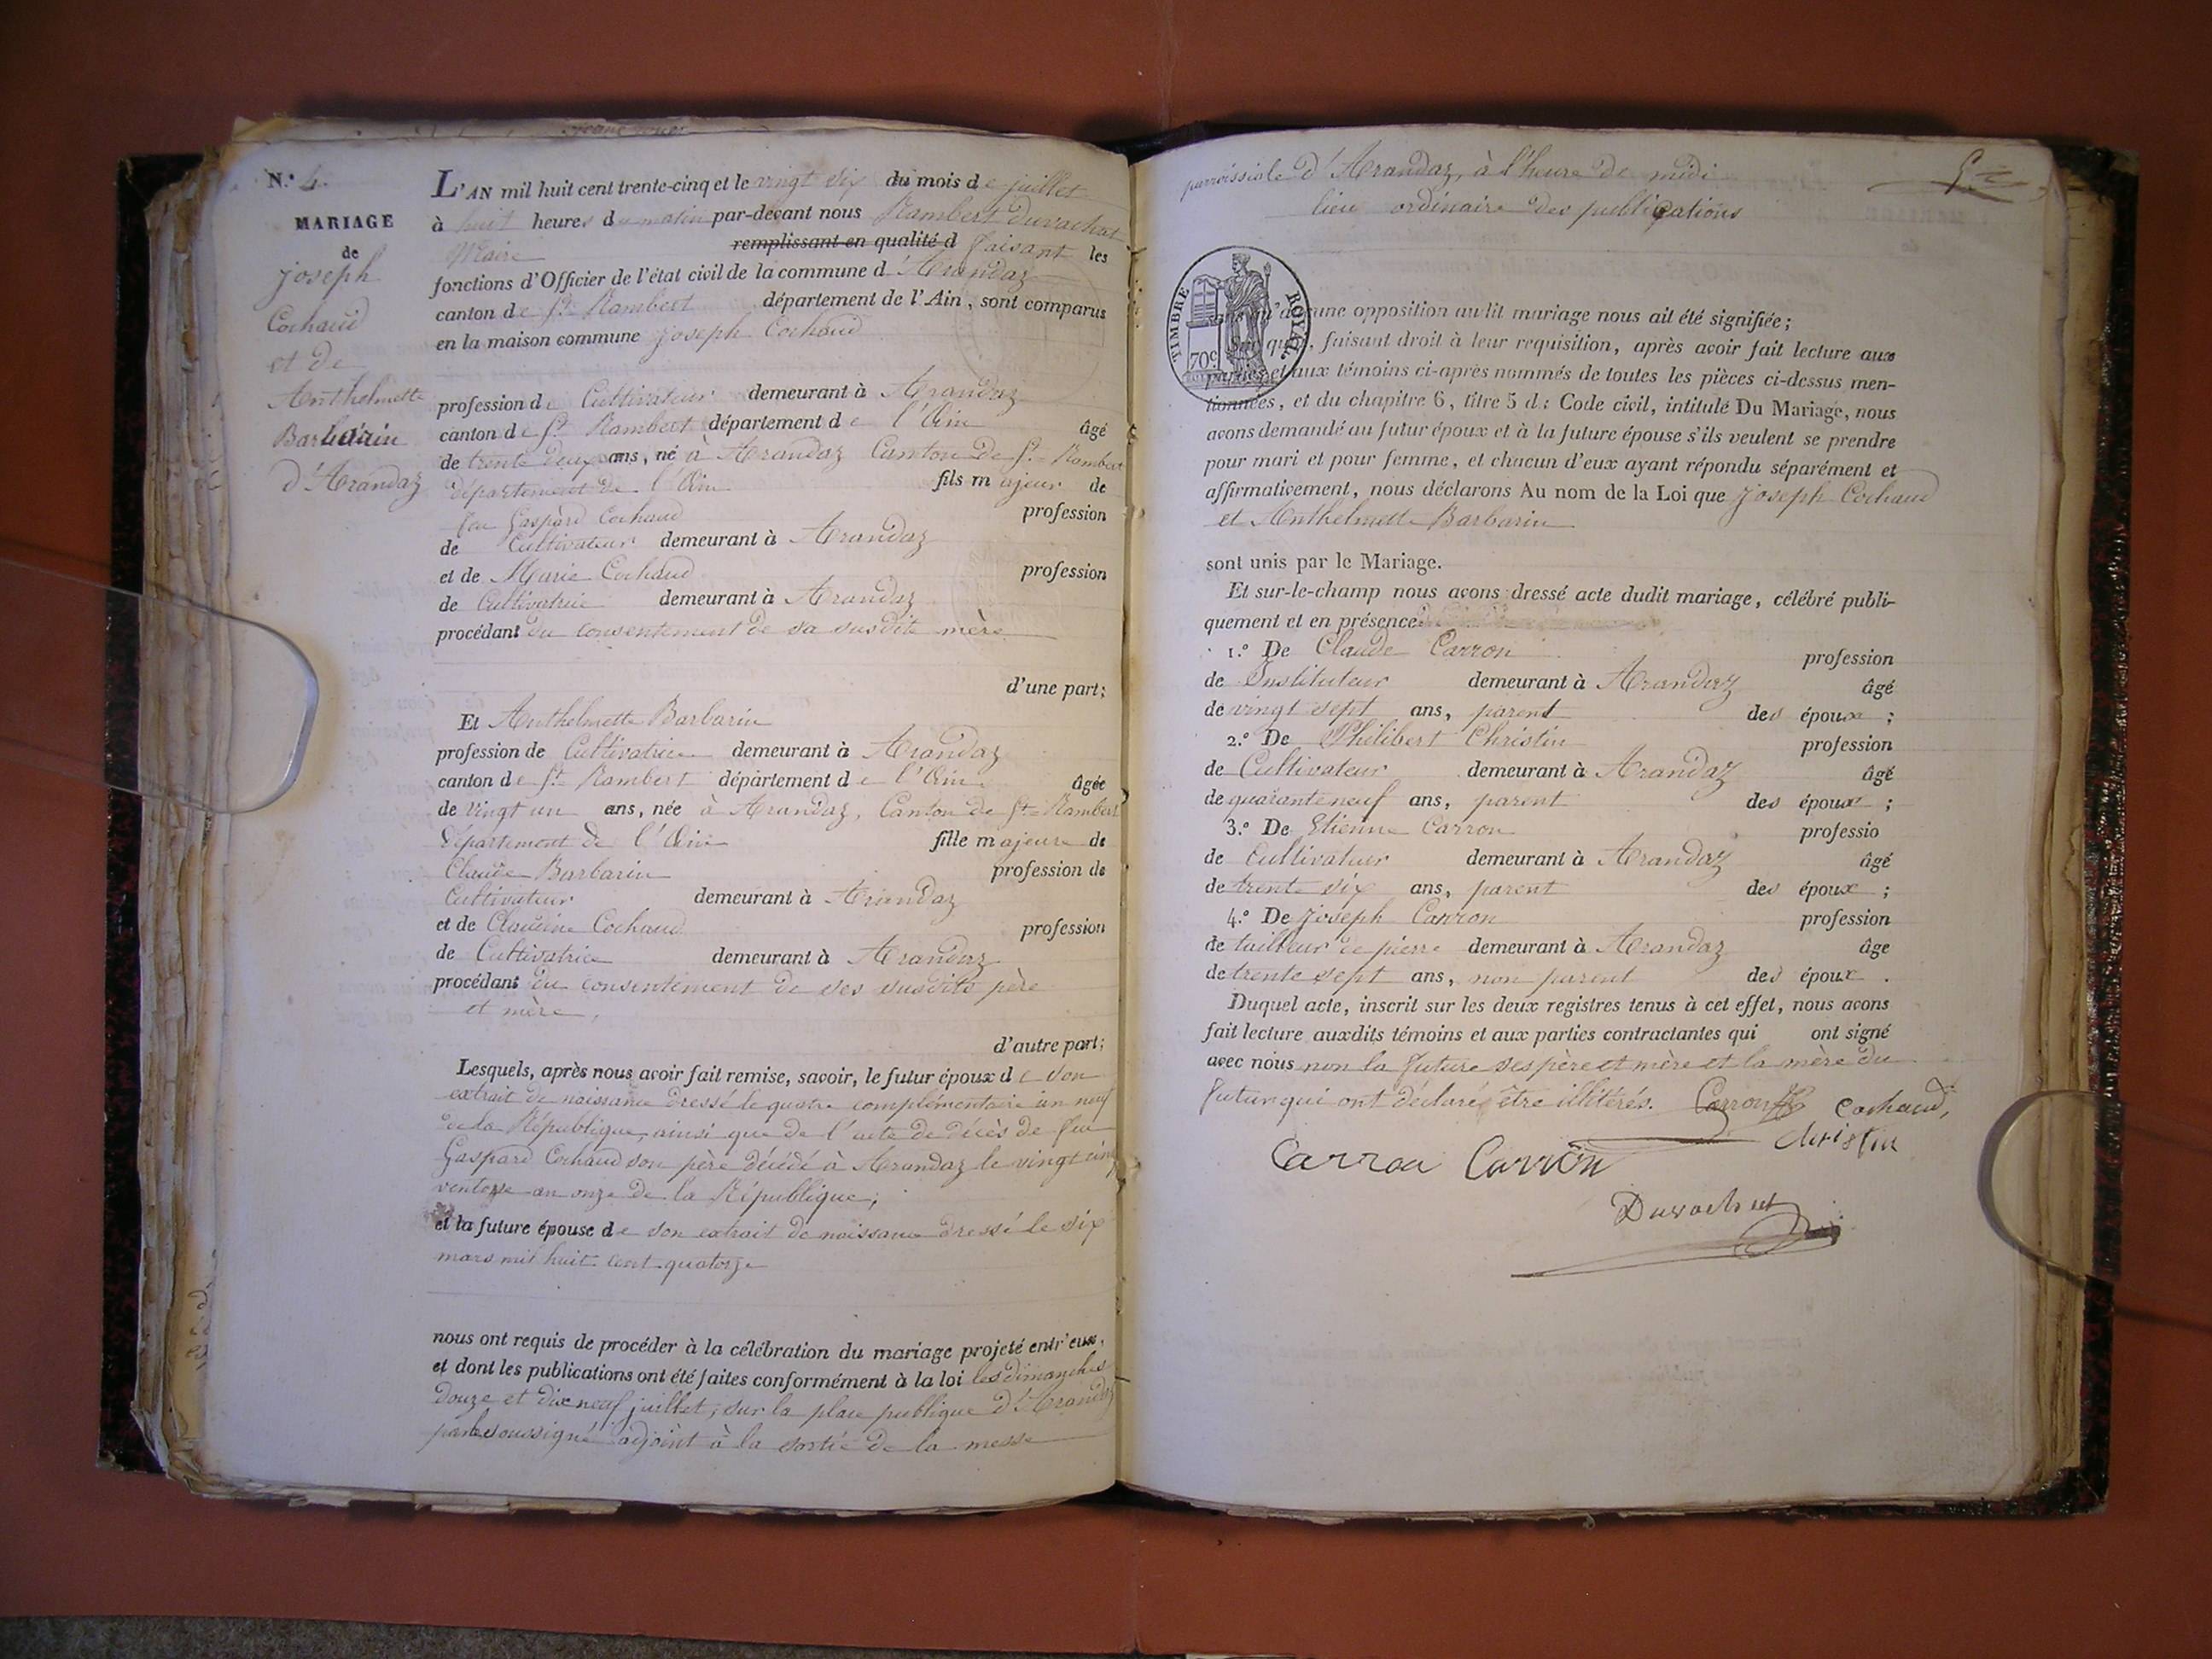 N.° 4.
MARIAGE
de
joseph
Cochaud
et de
Anthelmette
Barbarin
d'Arandaz
L'AN mil huit cent trente-cinq et le vingt six du mois de juillet
à huit heures du matin par-devant nous Rambert Duvachat
Maire remplissant en qualité d faisant les
fonctions d'Officier de l'état civil de la commune d'Arandaz
canton de St Rambert département de l'Ain, sont comparus
en la maison commune joseph Cochaud
profession de Cultivateur demeurant à Arandaz
canton de St Rambert département de l'Ain âgé
de trente deux ans, né à Arandaz Canton de St Rambert
département de l'Ain fils majeur de
feu Gaspard Cochaud profession
de Cultivateur demeurant à Arandaz
et de Marie Cochaud profession
de Cultivatrice demeurant à Arandaz
procédant du consentement de sa susdite mère
d'une part;
Et Anthelmette Barbarin
profession de Cultivatrice demeurant à Arandaz
canton de St Rambert département de l'Ain âgée
de vingt un ans, née à Arandaz, Canton de St Rambert
département de l'Ain fille majeure de
Claude Barbarin profession de
Cultivateur demeurant à Arandaz
et de Claudine Cochaud profession
de Cultivatrice demeurant à Arandaz
procédant du consentement de ses susdits père
et mère,
d'autre part;
Lesquels, après nous avoir fait remise, savoir, le futur époux de son
extrait de naissance dressé le quatre complémentaire an neuf
de la République, ainsi que de l'acte de décès de feu
Gaspard Cochaud son père décédé à Arandaz le vingt cinq
ventose an onze de la République;
et la future épouse de son extrait de naissance dressé le six
mars mil huit cent quatorze
nous ont requis de procéder à la célébration du mariage projeté entr'eux,
et dont les publications ont été faites conformément à la loi les dimanches
douze et dix neuf juillet, sur la place publique d'Arandaz
par le soussigné adjoint à la sortie de la messe
parroissiale d'Arandaz, à l'heure de midi
lieu ordinaire des publications
TIMBRE ROYAL
70c
aucune opposition audit mariage nous ait été signifiée;
quoi, faisant droit à leur requisition, après avoir fait lecture aux
parties et aux témoins ci-après nommés de toutes les pièces ci-dessus men-
tionnées, et du chapitre 6, titre 5 du Code civil, intitulé Du Mariage, nous
avons demandé au futur époux et à la future épouse s'ils veulent se prendre
pour mari et pour femme, et chacun d'eux ayant répondu séparément et
affirmativement, nous déclarons Au nom de la Loi que joseph Cochaud
et Anthelmette Barbarin
sont unis par le Mariage.
Et sur-le-champ nous avons dressé acte dudit mariage, célébré publi-
quement et en présence
1.° De Claude Carron profession
de Instituteur demeurant à Arandaz âgé
de vingt sept ans, parent des époux ;
2.° De Philibert Christin profession
de Cultivateur demeurant à Arandaz âgé
de quarante neuf ans, parent des époux ;
3.° De Etienne Carron professio
de Cultivateur demeurant à Arandaz âgé
de trente six ans, parent des époux ;
4.° De joseph Carron profession
de tailleur de pierre demeurant à Arandaz âge
de trente sept ans, non parent des époux .
Duquel acte, inscrit sur les deux registres tenus à cet effet, nous avons
fait lecture auxdits témoins et aux parties contractantes qui ont signé
avec nous non la future ses père et mère et la mère du
futur qui ont déclaré être illitérés. Carron Cochaud,
christin
Carron Carron
Duvachat